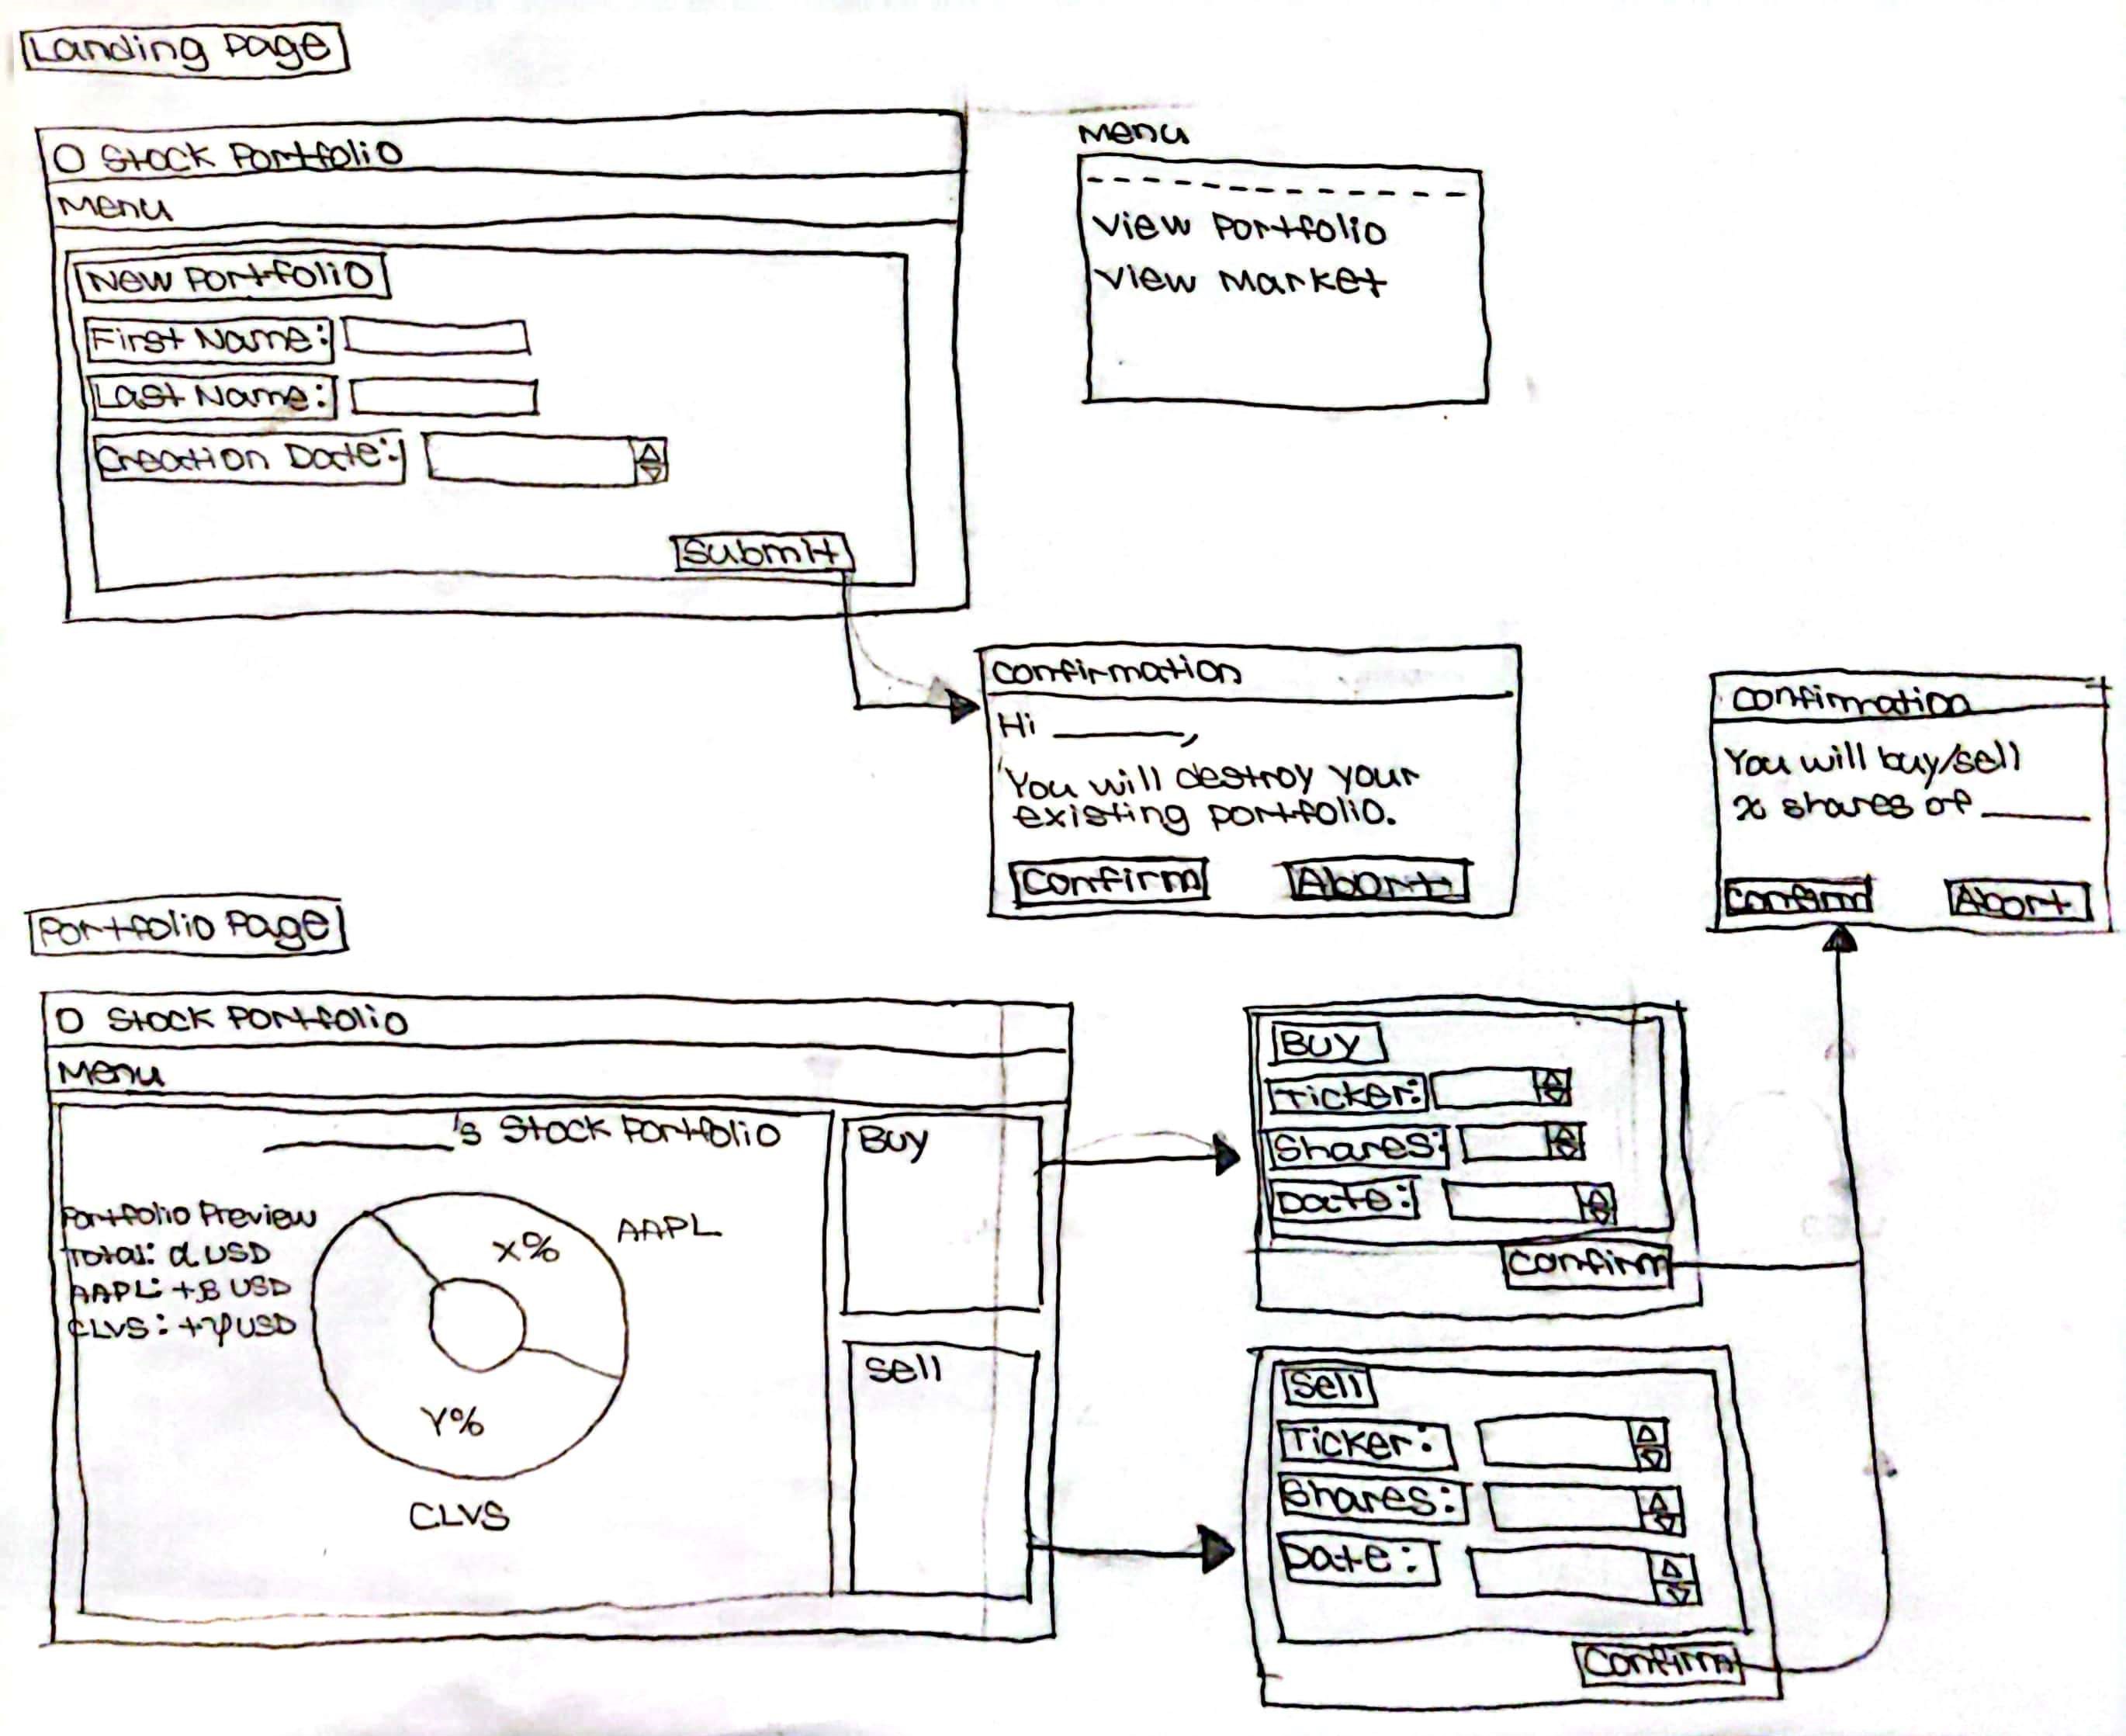 Landing Page
O Stock Portfolio
Menu
New Portfolio
First Name:
Last Name:
Creation Date:
Submit
Menu
View Portfolio
View Market
Confirmation
Hi ______,
You will destroy your
existing portfolio.
Confirm Abort
Confirmation
You will buy/sell
x shares of ______
Confirm Abort
Portfolio Page
O Stock Portfolio
Menu
______'s Stock Portfolio
Portfolio Preview
Total: α USD
AAPL: +β USD
CLVS: +γ USD
X%
AAPL
Y%
CLVS
Buy
Sell
Buy
Ticker:
Shares:
Date:
Confirm
Sell
Ticker:
Shares:
Date:
Confirm